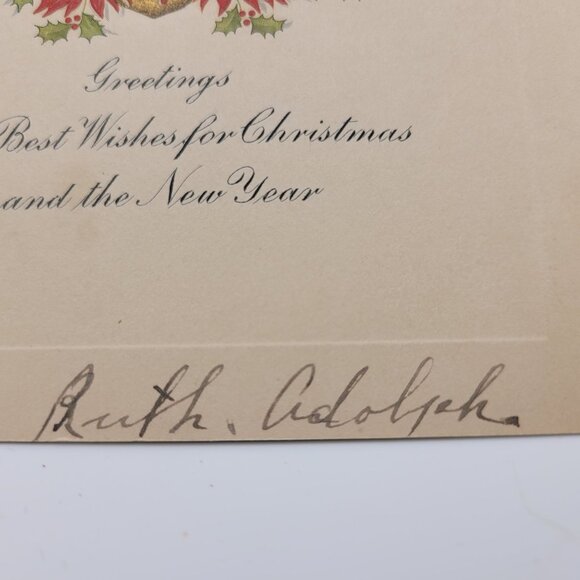 Greetings
Best Wishes for Christmas
and the New Year
Ruth. Adolph.